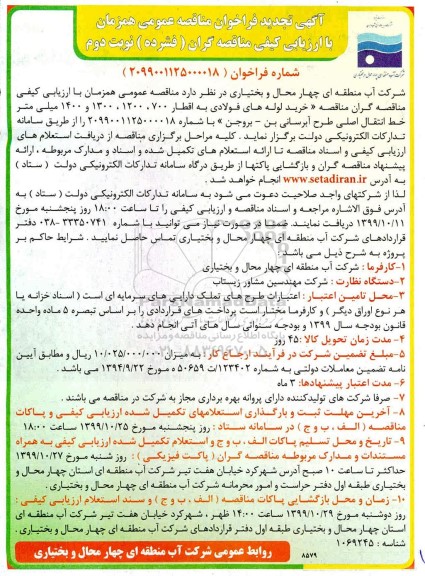 آگهی تجدید فراخوان مناقصه عمومی همزمان
با ارزیابی کیفی مناقصه گران ( فشرده ) نوبت دوم
شماره فراخوان ( ۲۰۹۹۰۰۱۱۲۵۰۰۰۰۱۸ )
شرکت آب منطقه ای چهار محال و بختیاری در نظر دارد مناقصه عمومی همزمان با ارزیابی کیفی
مناقصه گران مناقصه « خرید لوله های فولادی به اقطار ۷۰۰ ، ۱۲۰۰ ، ۱۳۰۰ و ۱۴۰۰ میلی متر
خط انتقال اصلی طرح آبرسانی بن - بروجن » با شماره ۲۰۹۹۰۰۱۱۲۵۰۰۰۰۱۸ را از طریق سامانه
تدارکات الکترونیکی دولت برگزار نماید . کلیه مراحل برگزاری مناقصه از دریافت استعلام های
ارزیابی کیفی و اسناد مناقصه تا ارائه استعلام های تکمیل شده و اسناد و مدارک مربوطه ، ارائه
پیشنهاد مناقصه گران و بازگشایی پاکتها از طریق درگاه سامانه تدارکات الکترونیکی دولت ( ستاد )
به آدرس www.setadiran.ir انجام خواهد شد .
لذا از شرکتهای واجد صلاحیت دعوت می شود به سامانه تدارکات الکترونیکی دولت ( ستاد ) به
آدرس فوق الاشاره مراجعه و اسناد مناقصه و ارزیابی کیفی را تا ساعت ۱۸:۰۰ روز پنجشنبه مورخ
۱۳۹۹/۱۰/۱۱ دریافت نمایند. ضمنا در صورت نیاز می توانید با شماره ۳۳۳۵۰۷۴۱-۰۳۸ دفتر
قراردادهای شرکت آب منطقه ای چهار محال و بختیاری تماس حاصل نمایید . شرایط حاکم بر
پروژه به شرح ذیل می باشد .
۱-کارفرما : شرکت آب منطقه ای چهار محال و بختیاری
۲-دستگاه نظارت : شرکت مهندسین مشاور زیستاب
۳-محل تامین اعتبار : اعتبارات طرح های تملک دارایی های سرمایه ای است ( اسناد خزانه یا
هر نوع اوراق دیگر ) و کارفرما مختار است پرداخت های قراردادی را بر اساس تبصره ۵ ماده واحده
قانون بودجه سال ۱۳۹۹ و بودجه سنواتی سال های آتی انجام دهد .
۴- مدت زمان تحویل کالا :۴۵ روز
۵-مبلغ تضمین شرکت در فرآیند ارجاع کار : به میزان ۱۰/۰۲۵/۰۰۰/۰۰۰ ریال و مطابق آیین
نامه تضمین معاملات دولتی به شماره ۱۲۳۴۰۲/ت ۵۰۶۵۹ ه مورخ ۱۳۹۴/۹/۲۲ می باشد .
۶- مدت اعتبار پیشنهادها: ۳ ماه
۷- صرفا شرکت های تولیدکننده دارای پروانه بهره برداری مجاز به شرکت در مناقصه می باشند .
۸- آخرین مهلت ثبت و بارگذاری استعلامهای تکمیل شده ارزیابی کیفی و پاکات
مناقصه ( الف ، ب و ج ) در سامانه ستاد : روز پنجشنبه مورخ ۱۳۹۹/۱۰/۲۵ ساعت ۱۸:۰۰
۹- تاریخ و محل تسلیم پاکات الف ، ب و ج و استعلام تکمیل شده ارزیابی کیفی به همراه
مستندات و مدارک مربوطه مناقصه گران ( پاکت فیزیکی ) : روز شنبه مورخ ۱۳۹۹/۱۰/۲۷
حداکثر تا ساعت ۱۰ صبح آدرس شهرکرد خیابان هفت تیر شرکت آب منطقه ای استان چهار محال و
بختیاری طبقه اول دفتر حراست و امور محرمانه شرکت آب منطقه ای چهار محال و بختیاری .
۱۰- زمان و محل بازگشایی پاکات مناقصه ( الف ، ب و ج ) و سند استعلام ارزیابی کیفی :
روز دوشنبه مورخ ۱۳۹۹/۱۰/۲۹ ساعت ۱۴:۰۰ ظهر ، شهرکرد خیابان هفت تیر شرکت آب منطقه ای
استان چهار محال و بختیاری طبقه اول دفتر قراردادهای شرکت آب منطقه ای چهار محال و بختیاری .
شناسه : ۱۰۶۹۲۴۵
روابط عمومی شرکت آب منطقه ای چهار محال و بختیاری
۸۵۷۹